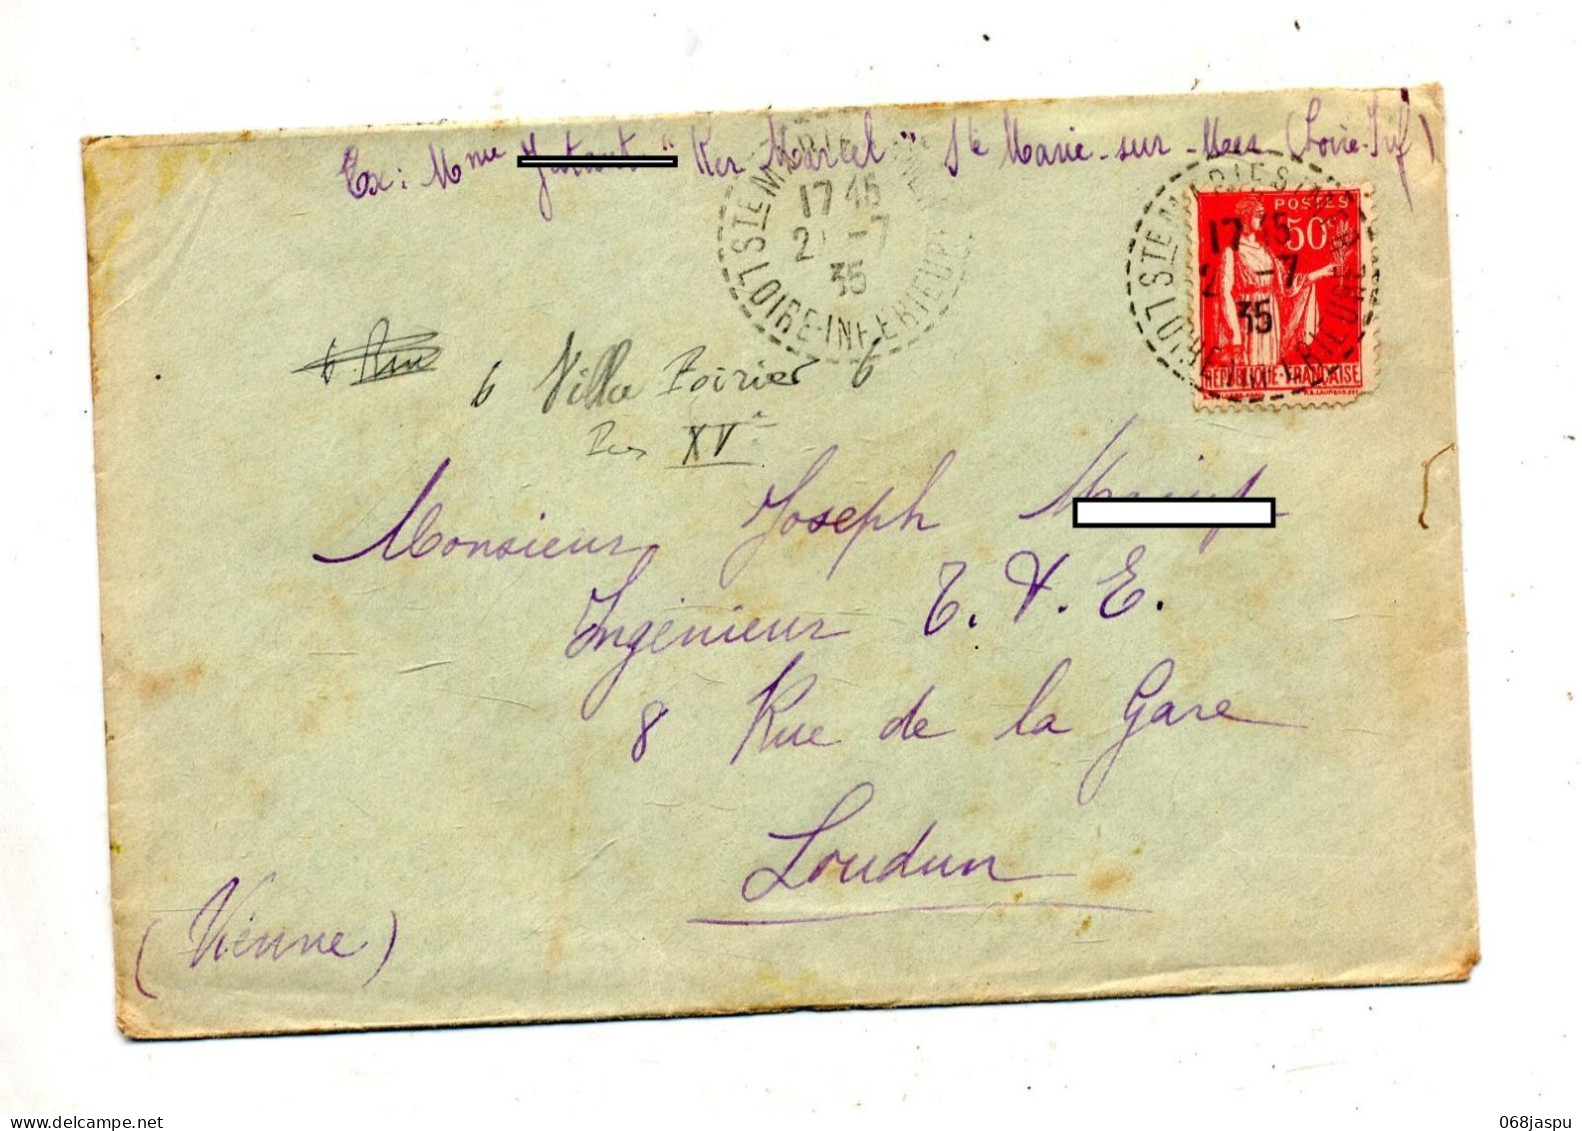 Ex: Mme "Ker Marcel" Ste Marie-sur-Mer (Loire-Inf)
STE MARIE
17 45
21 -7
35
LOIRE-INFERIEURE
POSTES
50c
STE MARIE S/MER
17 45
2 -7
35
LOIRE INFERIEURE
REPUBLIQUE-FRANÇAISE
6 Rue
6 Villa Poirier 6
XVe
Monsieur Joseph
Ingénieur T.P.E.
8 Rue de la Gare
Loudun
(Vienne)
068jaspu